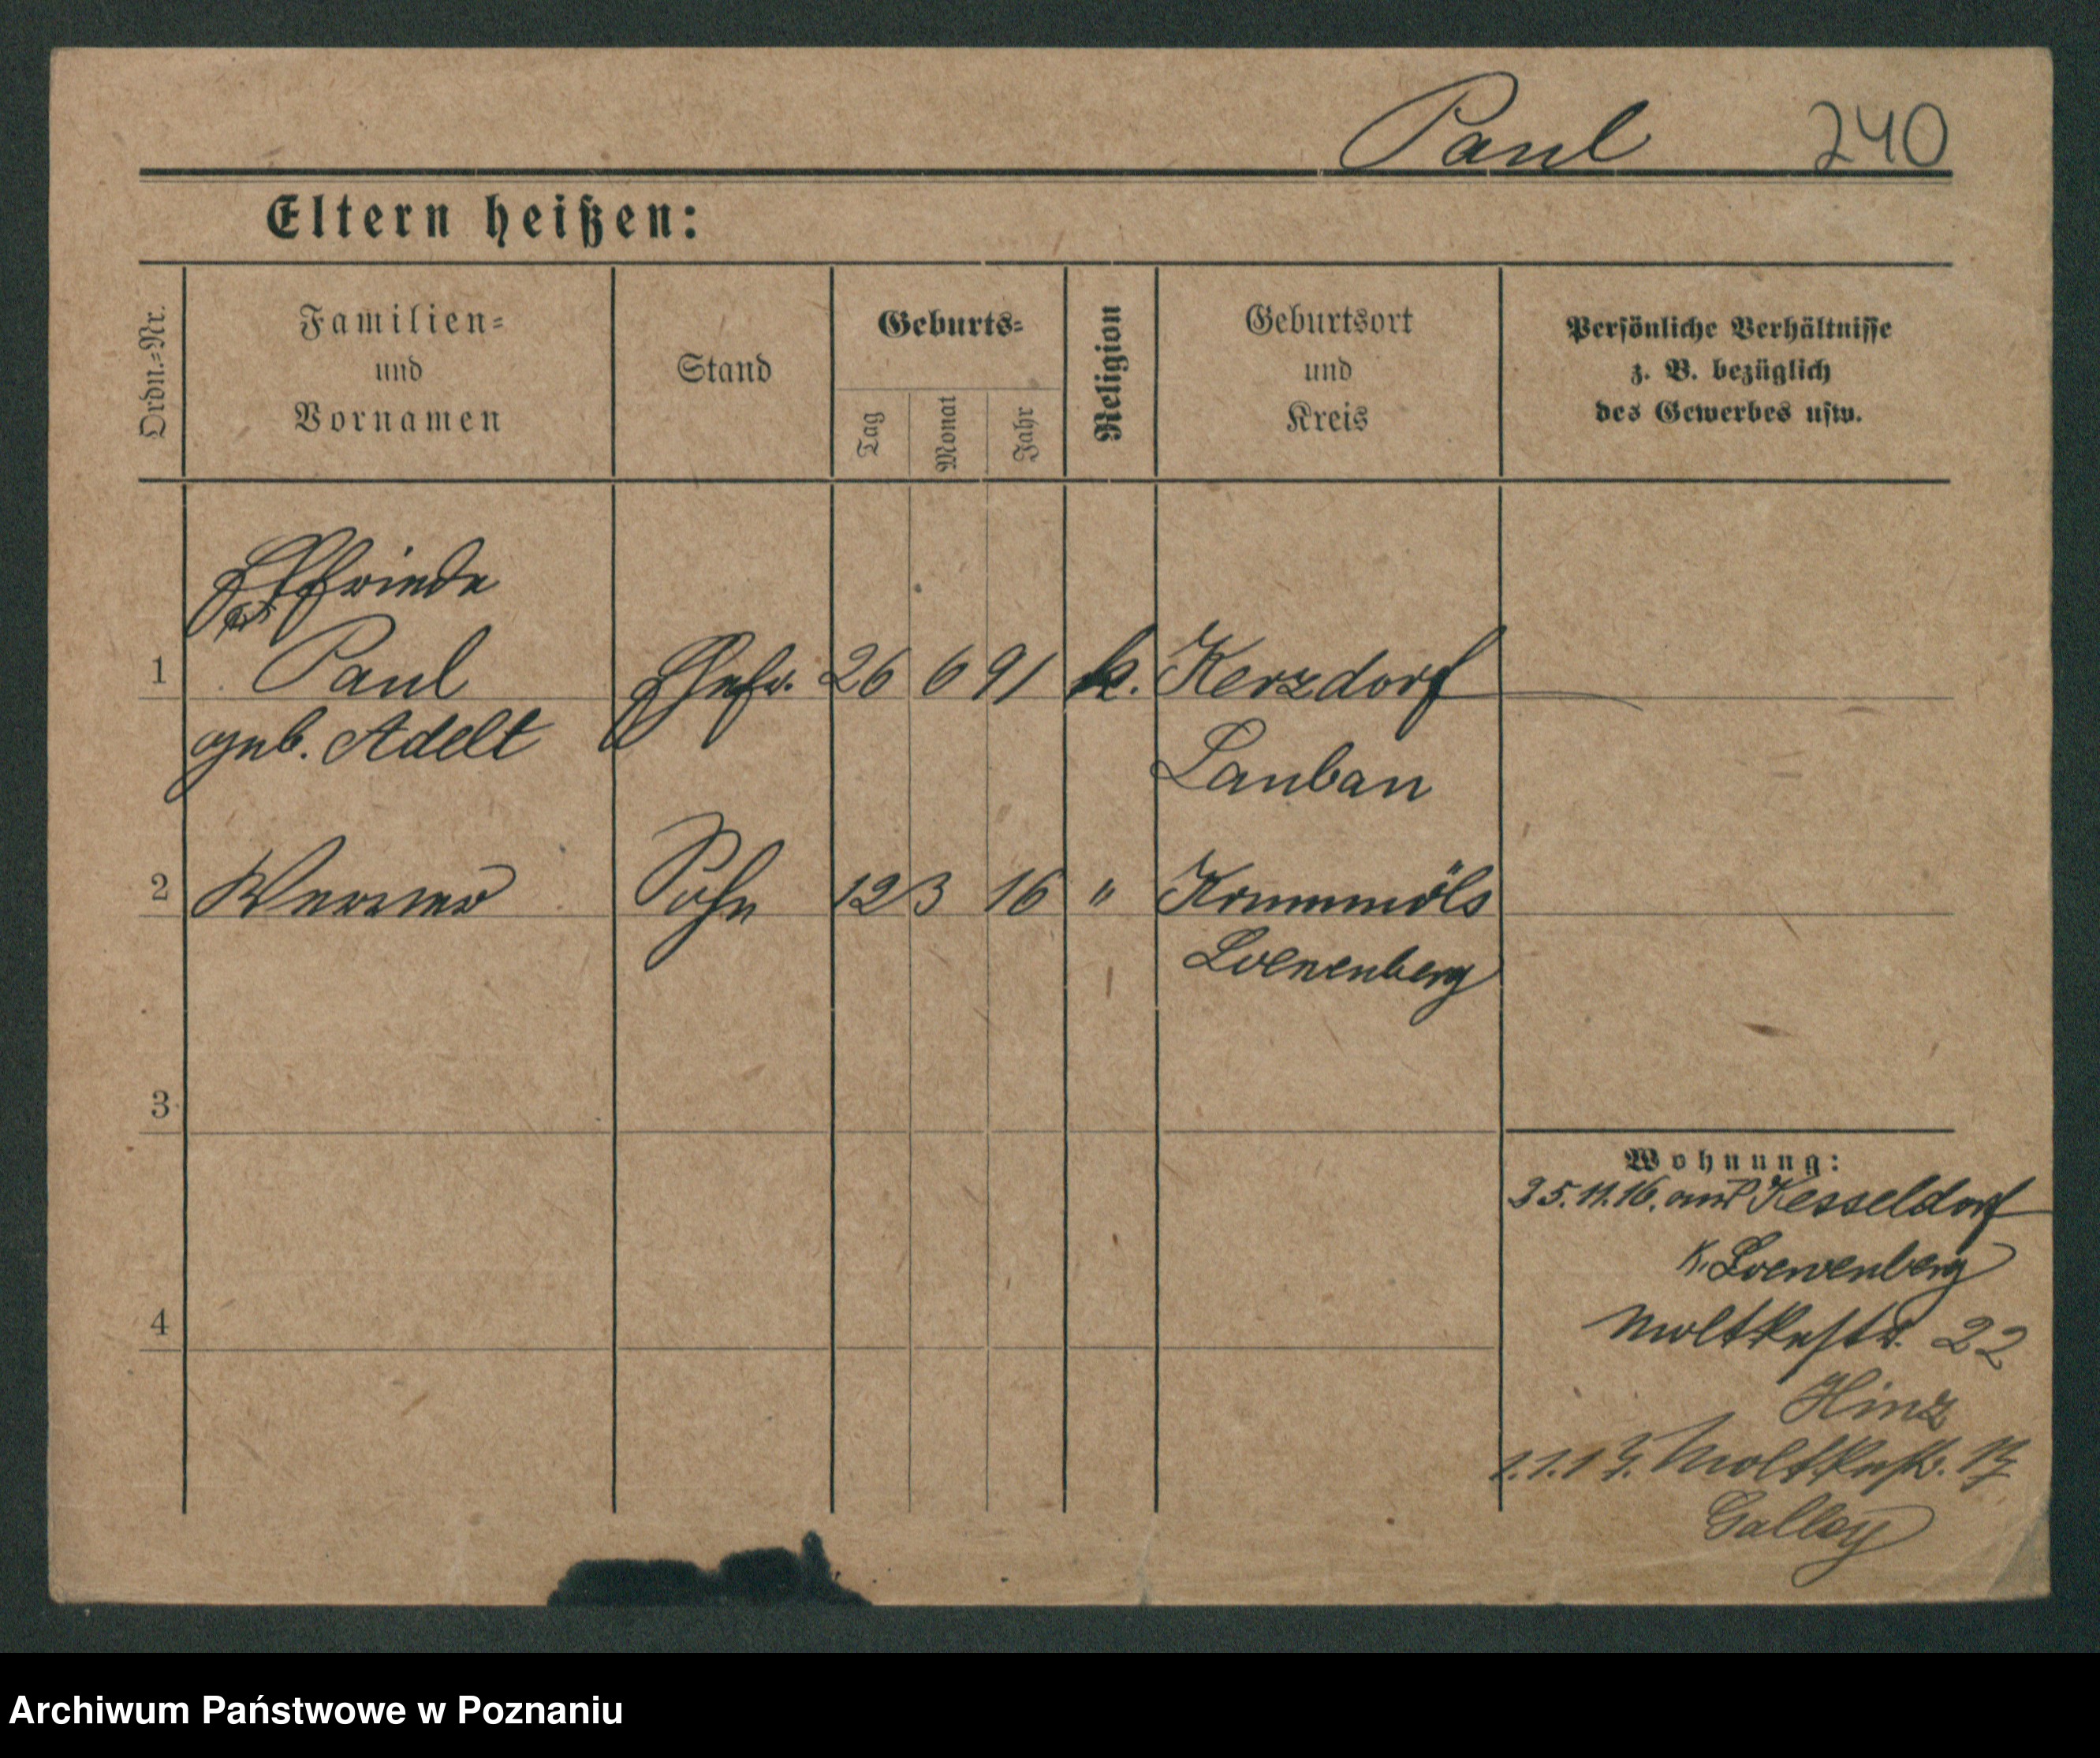 Paul 240
Eltern heißen:
Ordn.-Nr.
Familien-
und
Vornamen
Stand
Geburts-
Tag
Monat
Jahr
Religion
Geburtsort
und
Kreis
Persönliche Verhältnisse
z. B. bezüglich
des Gewerbes usw.
Elfriede
1 Paul Ehefr. 26 6 91 k. Kerzdorf
geb. Adelt Lauban
2 Werner Sohn 12 3 16 " Krummöls
Loewenberg
3
4
Wohnung:
25.11.16. aus Kesseldorf
K. Loewenberg
Moltkestr. 22
Hinz
1.1.17. Moltkestr. 17
Galloy
Archiwum Państwowe w Poznaniu